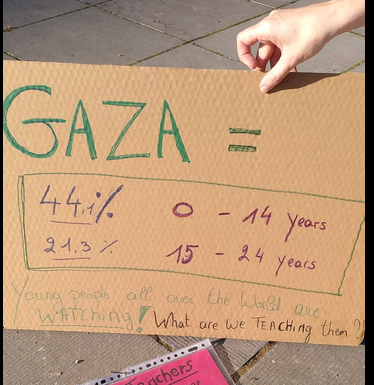 GAZA =
44,1% 0 - 14 years
21.3 % 15 - 24 years
Young people all over the World are
WATCHing! What are we TEACHing them?
Teachers